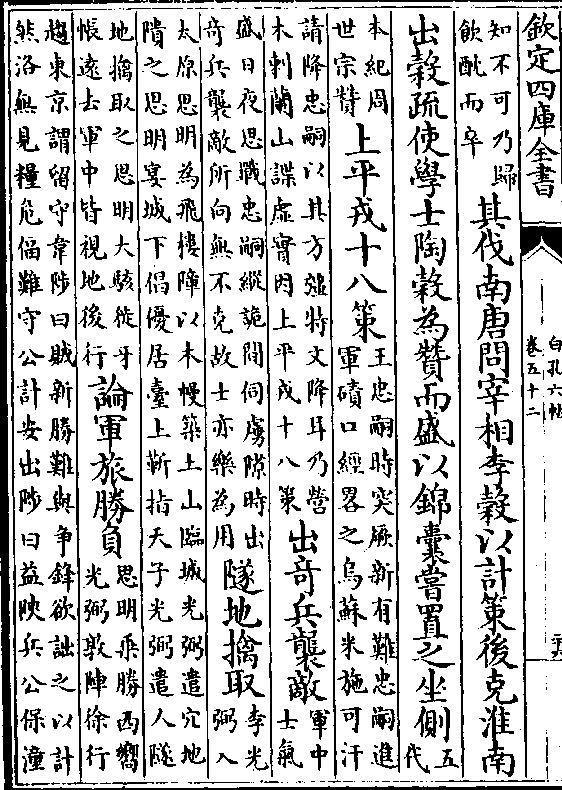 欽定四庫全書
白孔六帖
卷五十二
知不可乃歸
飲酖而卒
其伐南唐問宰相李穀以計策後克淮南
出穀疏使學士陶穀為贊而盛以錦囊嘗置之坐側
五
代
本紀周
世宗贊
上平戎十八策
王忠嗣時突厥新有難忠嗣進
軍磧口經畧之烏蘇米施可汗
請降忠嗣以其方彊特文降耳乃營
木剌蘭山諜虛實因上平戎十八策
出奇兵襲敵
軍中
士氣
盛日夜思戰忠嗣縱詭間伺虜隙時出
奇兵襲敵所向無不克故士亦樂為用
隧地擒取
李光
弼入
太原思明為飛樓障以木幔築土山臨城光弼遣穴地
隤之思明宴城下倡優居臺上靳指天子光弼遣人隧
地擒取之思明大駭徙牙
帳遠去軍中皆視地後行
論軍旅勝負
思明乘勝西嚮
光弼敦陣徐行
趨東京謂留守韋陟曰賊新勝難與争鋒欲詘之以計
然洛無見糧危偪難守公計安出陟曰益陝兵公保潼